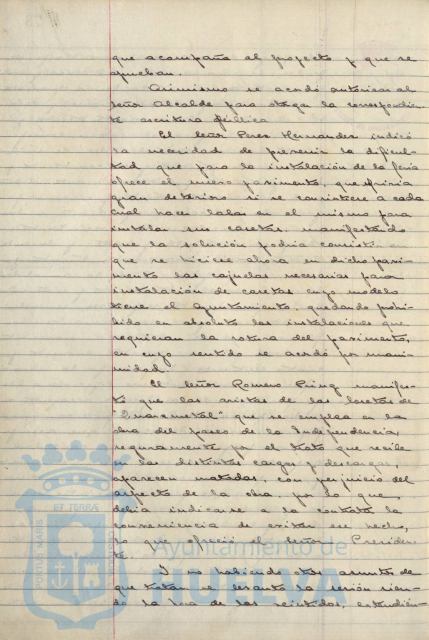 que acompaña al proyecto y que se
aprueban.
Asimismo se acordó autorizar al
Señor Alcalde para otorgar la correspondien-
te escritura pública
El Señor Perez Hernandez indicó
la necesidad de prevenir la dificul-
tad que para la instalación de la feria
ofrece el nuevo pavimento, que sufriria
gran deterioro si se consintiese a cada
cual hacer labor en el mismo para
instalar sus casetas, manifestando
que la solución podria consistir
que se hiciese ahora en dicho pavi-
mento las cajuelas necesarias para
instalación de casetas cuyo modelo
tiene el Ayuntamiento, quedando prohi-
bido en absoluto las instalaciones que
requieran la rotura del pavimento,
en cuyo sentido se acordó por unani-
midad.
El Señor Romero manifes-
tó que las aristas de las losetas de
que se emplea en la
obra del paseo de la Independencia
seguramente por el trato que recibe
en las distintas cargas y descargas,
aparecen matadas, con perjuicio del
aspecto de la obra, por lo que
debia indicarse a la contrata la
conveniencia de evitar ese hecho,
lo que ofreció el Señor Presiden-
te.
Y no habiendo otros asuntos de
que tratar se levantó la sesión sien-
do la hora de las veintidos, extendien-
PORTUS MARIS
ET TERRAE
CUSTODIA
Ayuntamiento de
HUELVA